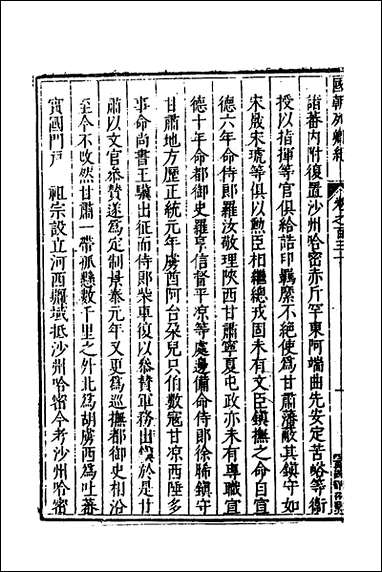 國朝列卿紀 卷之一百二十
諸番內附復置沙州哈密赤斤罕東阿端曲先安定苦峪等衛
授以指揮等官俱給誥印羈縻不絕使為甘肅藩蔽其鎮守如
宋晟宋琥等俱以勳臣相繼總戎固未有文臣鎮撫之命自宣
德六年命侍郎羅汝敬理陝西甘肅寧夏屯政亦未有專職宣
德十年命都御史羅亨信督平凉等處邊備命侍郎徐晞鎮守
甘肅地方歷正統元年虜酋阿台朵兒只伯數寇甘凉西陲多
事命尚書王驥出征而侍郎柴車復以叅贊軍務出於是甘
肅以文官叅贊遂為定制景泰元年又更為巡撫都御史相沿
至今不改然甘肅一帶孤懸數千里之外北為胡虜西為吐蕃
實國門戶 祖宗設立河西疆域抵沙州哈密今考沙州哈密